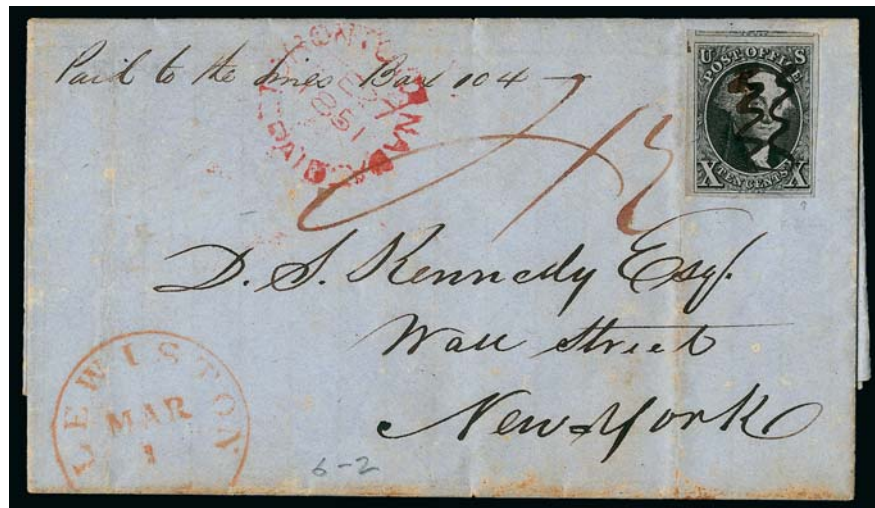 Paid to the lines Box 104
U S
POST OFFICE
X TEN CENTS X
TORONTO CANADA
PAID
D. S. Kennedy Esqr.
Wall Street
New York
LEWISTON
MAR
1
6-2